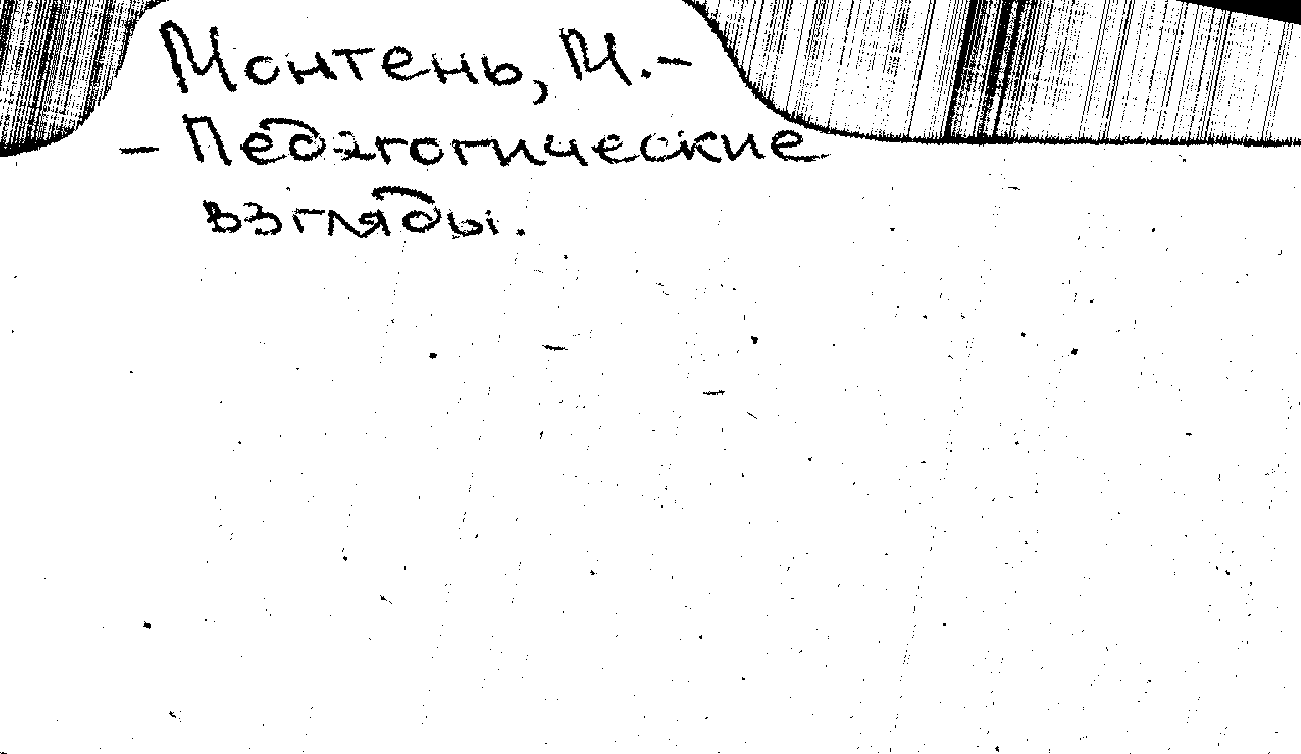 Монтень, М.–
– Педагогические
взгляды.